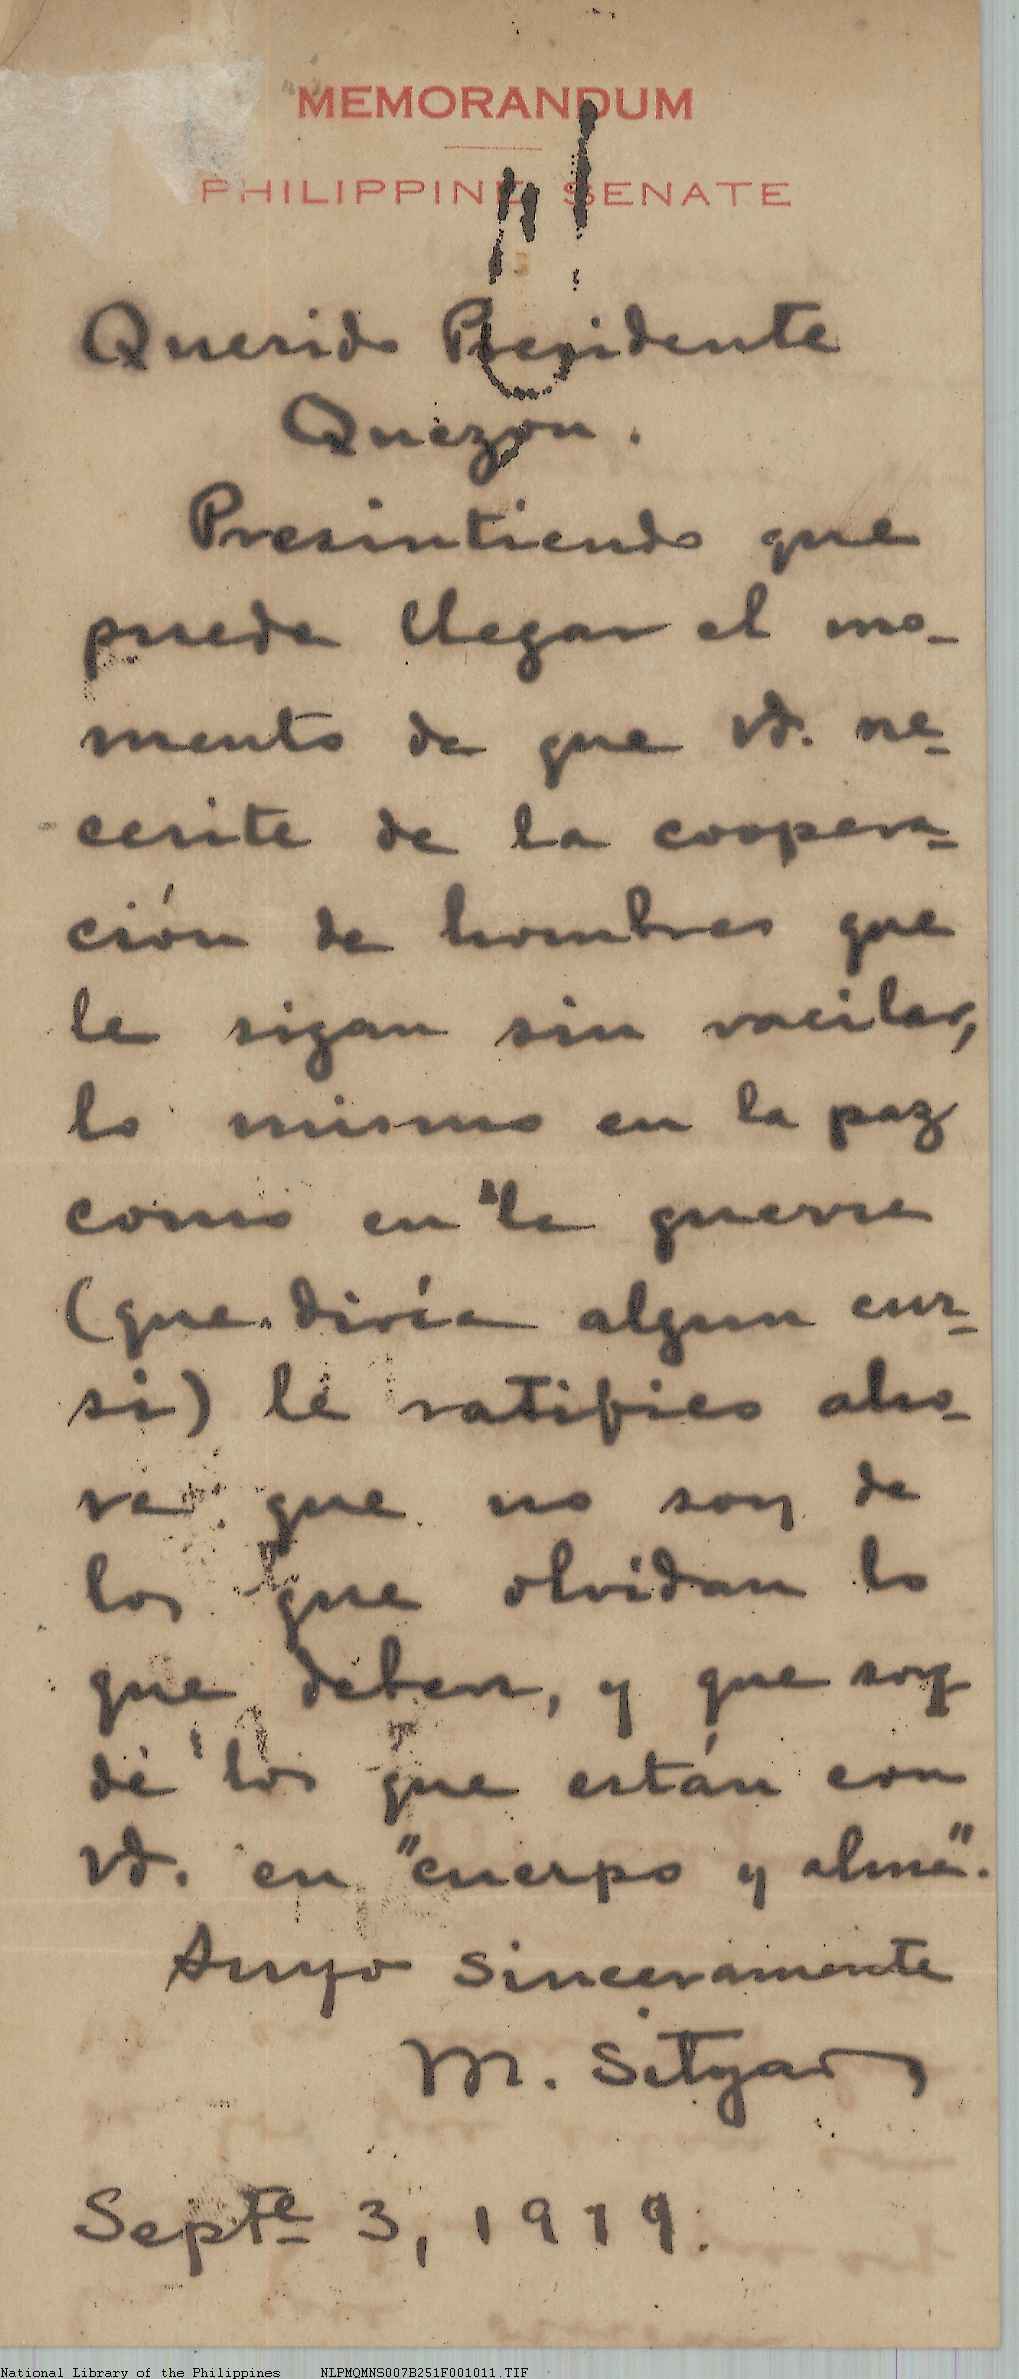 MEMORANDUM
PHILIPPINE SENATE
Querido Presidente
Quezon.
Presintiendo que
puede llegar el mo-
mento de que Vd. ne-
cesite de la coopera-
ción de hombres que
le sigan sin vacilar,
lo mismo en la paz
como en la guerra
(que diría algun cur-
si) le ratifico aho-
ra que no soy de
los que olvidan lo
que deben, y que soy
de los que están con
Vd. en "cuerpo y alma".
Suyo sinceramente
M. Sityar
Septe 3, 1919.
National Library of the Philippines NLPMQMNS007B251F001011.TIF